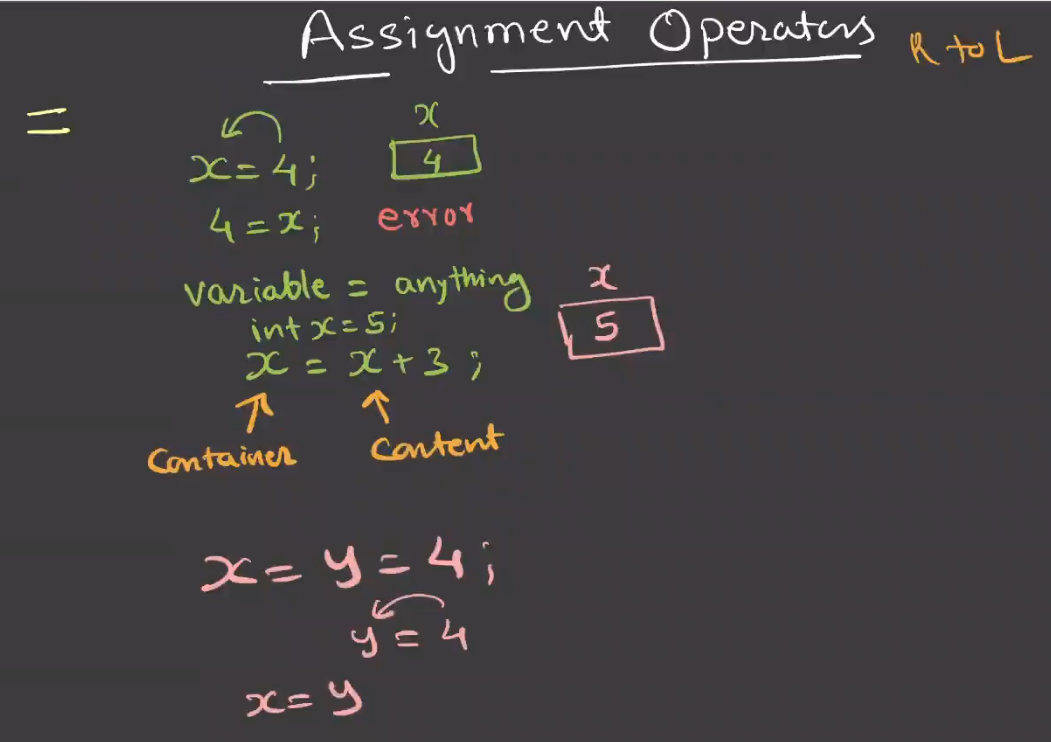 Assignment Operators R to L
=
x
x = 4; 4
4 = x; error
variable = anything x
int x = 5; 5
x = x + 3;
Container Content
x = y = 4;
y = 4
x = y